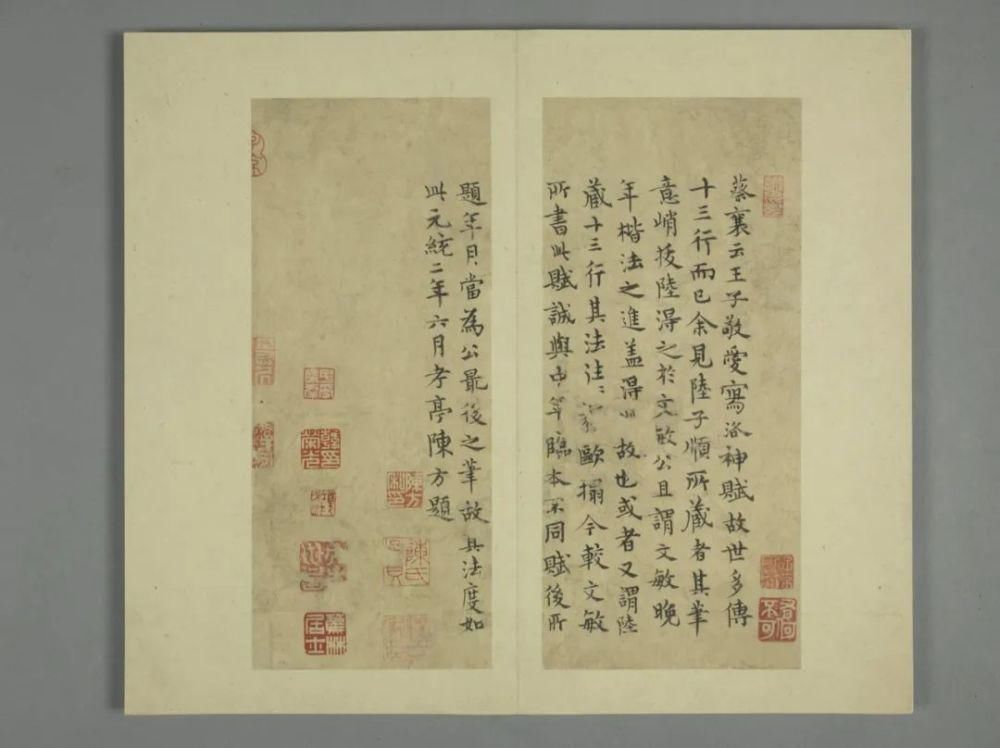 蔡襄云王子敬愛寫洛神賦故世多傳
十三行而已余見陸子順所藏者其筆
意峭拔陸得之於文敏公且謂文敏晚
年楷法之進盖得此故也或者又謂陸
藏十三行其法往〻歐搨今較文敏
所書此賦誠與中年臨本不同賦後所
題年月當為公最後之筆故其法度如
此元統二年六月孝亭陳方題